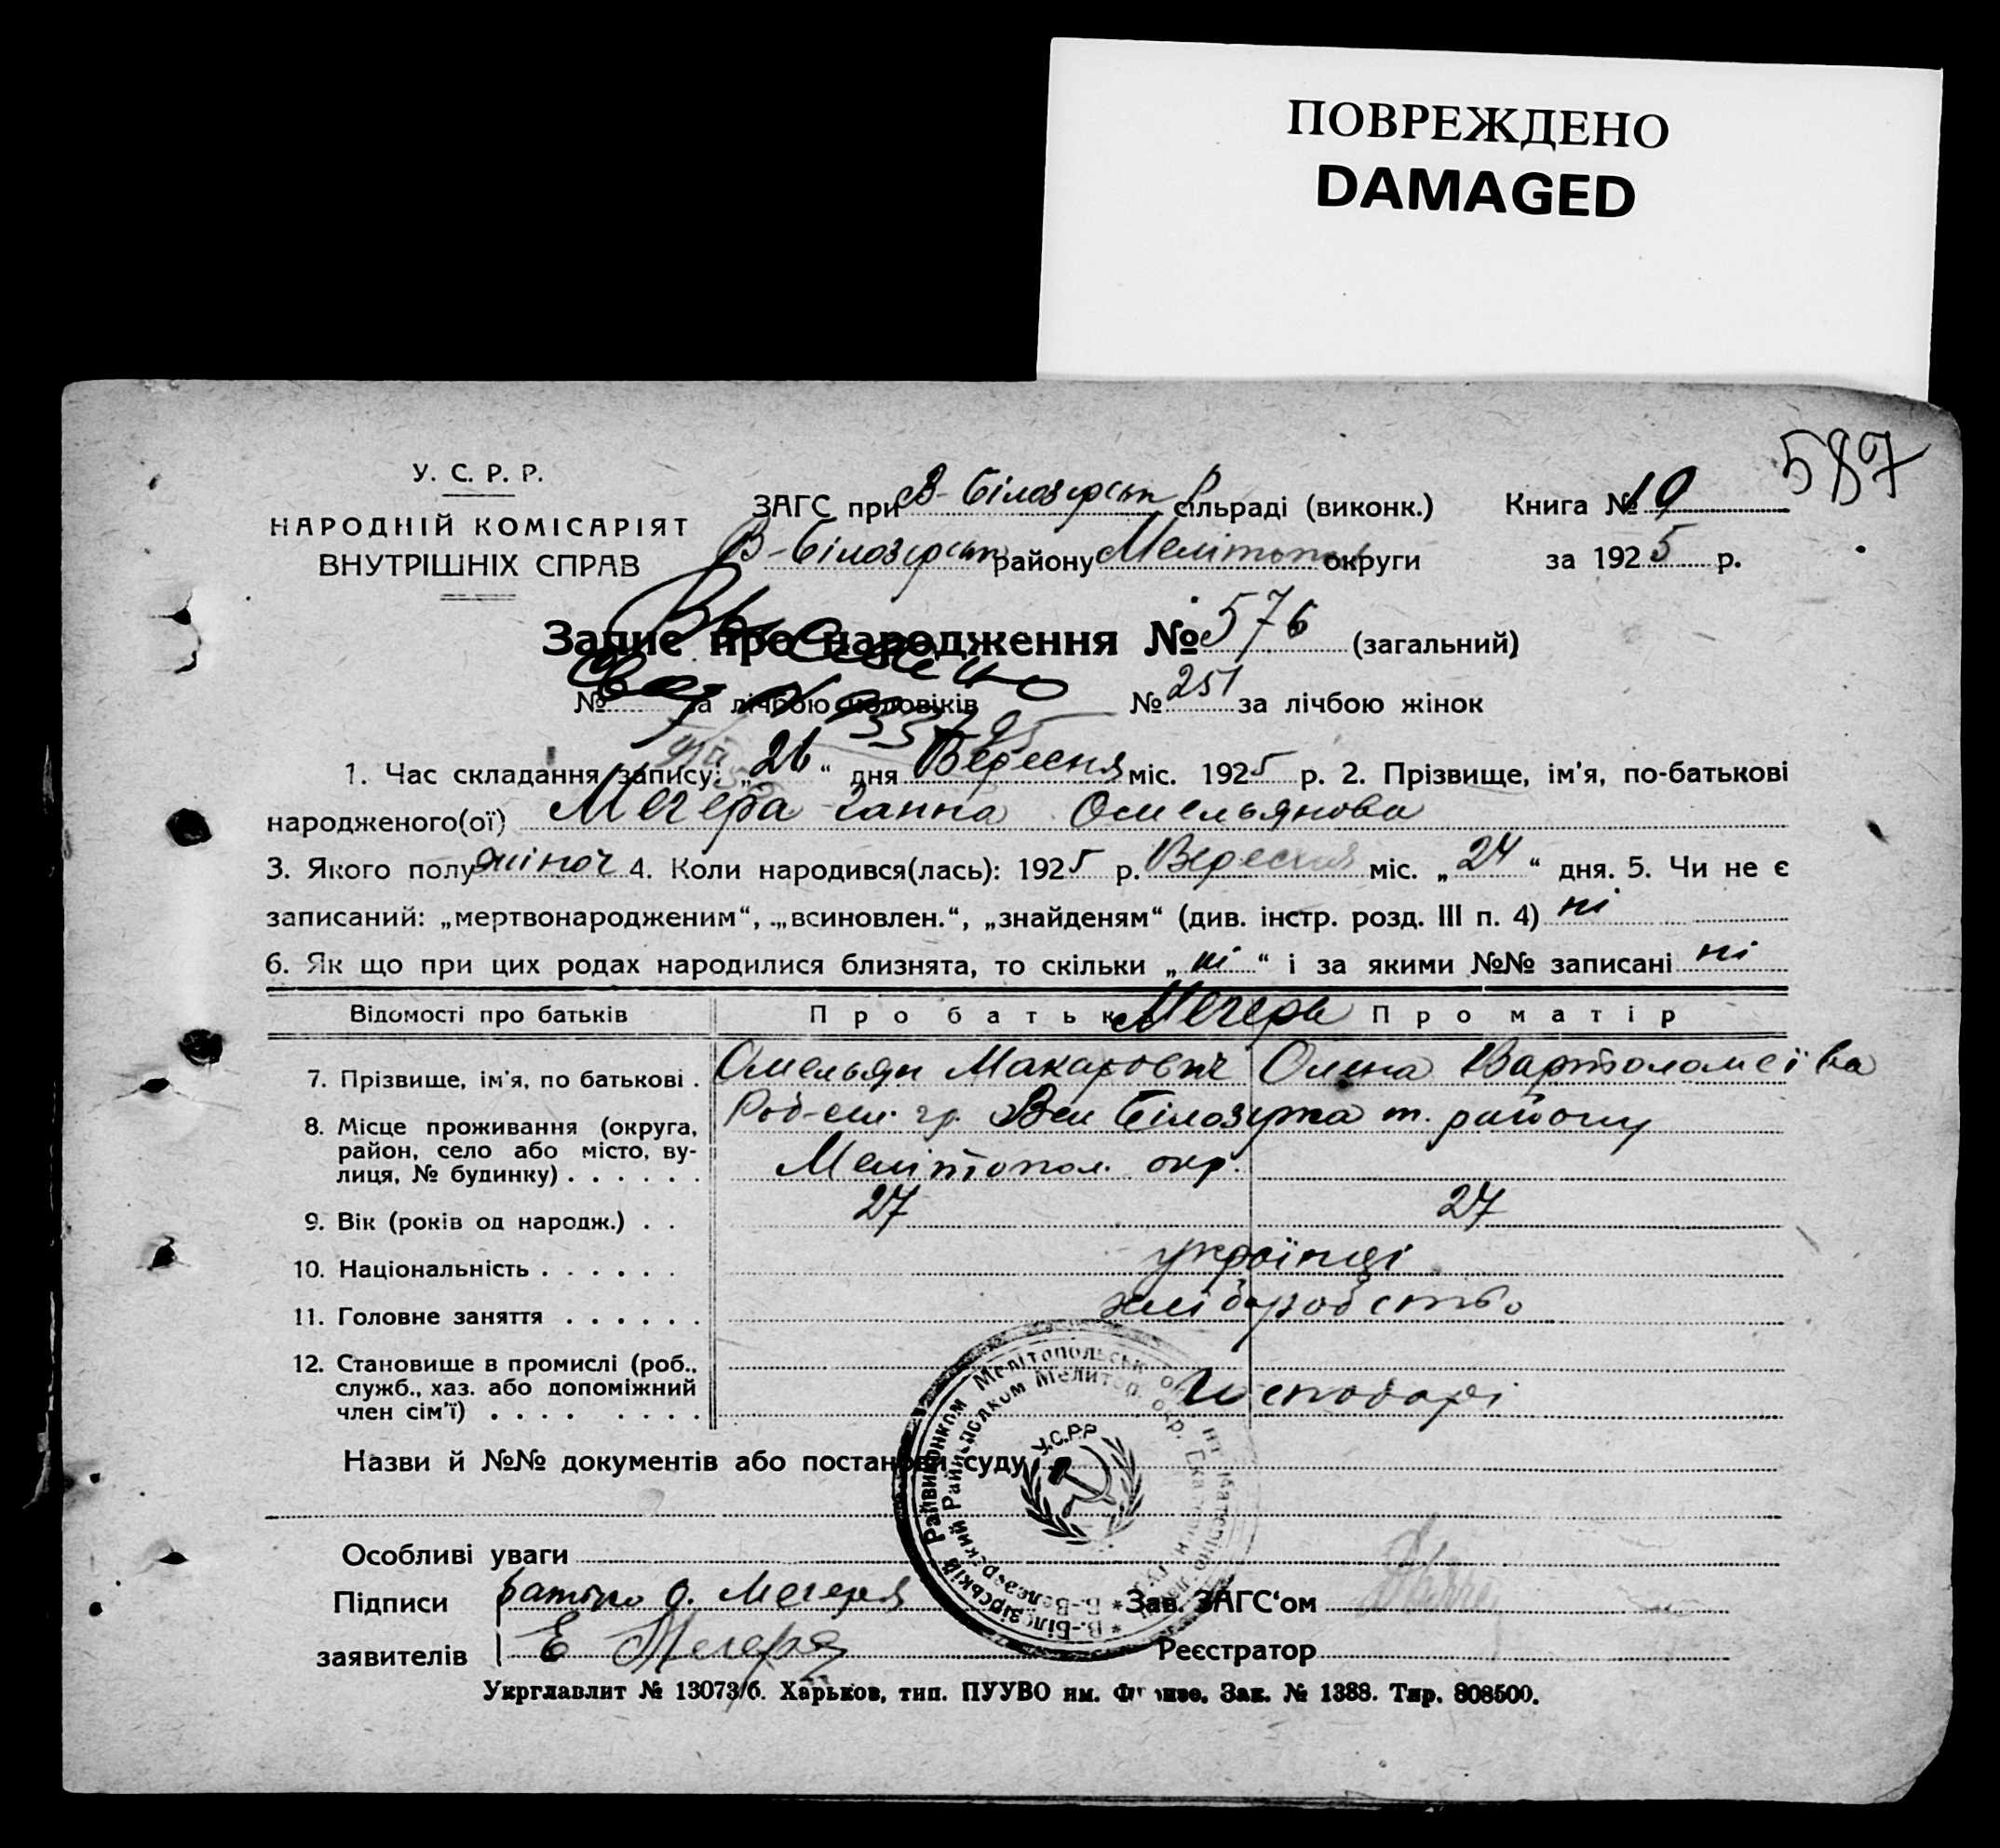 ПОВРЕЖДЕНО
DAMAGED
587
У. С. Р. Р.
НАРОДНІЙ КОМІСАРІЯТ
ВНУТРІШНІХ СПРАВ
ЗАГС при В-Білозерськ сільраді (виконк.) Книга № 10
В-Білозерськ району Мелітопол округи за 1925 р.
Запис про народження № 576 (загальний)
№ за лічбою чоловіків № 251 за лічбою жінок
1. Час складання запису: „26“ дня Вересня міс. 1925 р. 2. Прізвище, ім'я, по-батькові
народженого(ої) Мегера Ганна Омельянова
3. Якого полу жіноч 4. Коли народився(лась): 1925 р. Вересня міс. „24“ дня. 5. Чи не є
записаний: „мертвонародженим“, „всиновлен.“, „знайденям“ (див. інстр. розд. III п. 4) ні
6. Як що при цих родах народилися близнята, то скільки „ні“ і за якими №№ записані ні
Відомості про батьків Про батька Мегери Про матір
7. Прізвище, ім'я, по батькові . Омельян Макарович Олена Вартоломеївa
8. Місце проживання (округа, Вел Білозерка т. району
район, село або місто, ву-
лиця, № будинку) . . . . . . Мелітопол. окр.
9. Вік (років од народж.) . . 27 27
10. Національність . . . . . . українці
11. Головне заняття . . . . . . хліборобство
12. Становище в промислі (роб.,
служб., хаз. або допоміжний
член сім'ї) . . . . . . . . Господарі
Назви й №№ документів або постанови суду
У.С.Р.Р
В.-Білозірській Райвиконком Мелітопольськ
В.-Белозерский Райисполком Мелитоп. окр.
Особливі уваги
Підписи батько О. Мегеря Зав. ЗАГС'ом
заявителів Е Мегеря Реєстратор
Укрглавлит № 13073/б. Харьков, тип. ПУУВО им. Фрунзе. Зак. № 1388. Тир. 808500.